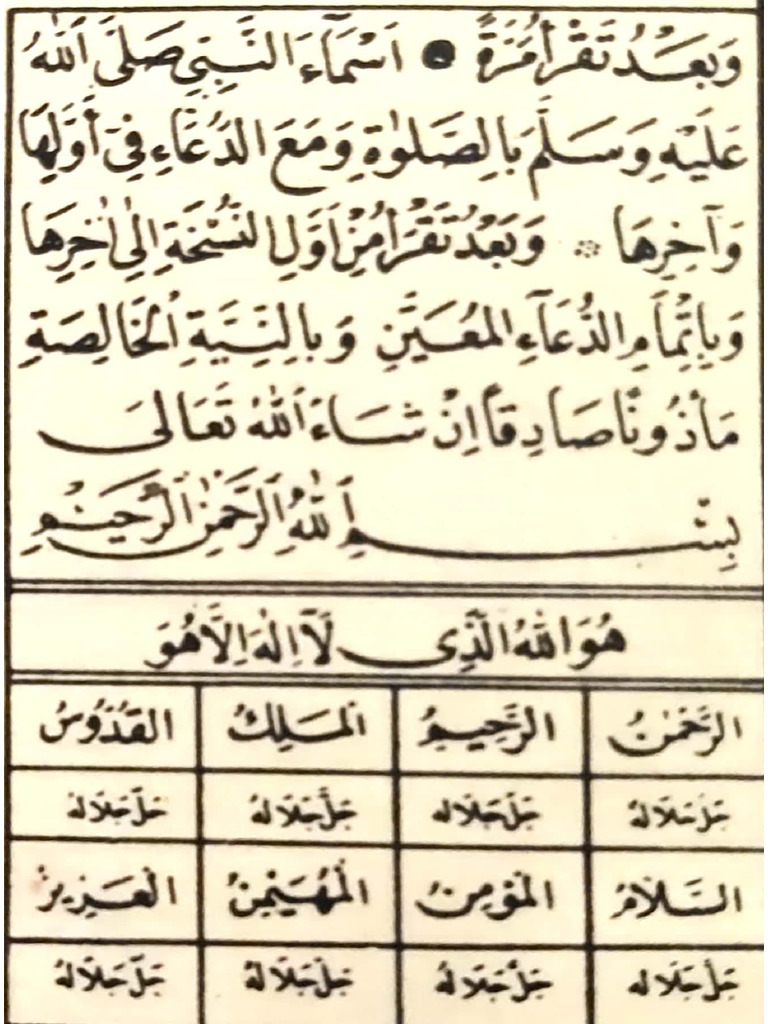 وَبَعْدُ تَقْرَأُ مَرَّةً ● اَسْمَآءَ النَّبِيِّ صَلَّى اللّٰهُ
عَلَيْهِ وَسَلَّمَ بِالصَّلٰوةِ وَمَعَ الدُّعَاءِ فِيْ أَوَّلِهَا
وَآخِرِهَا ۞ وَبَعْدُ تَقْرَأُ مِنْ اَوَّلِ النُّسْخَةِ اِلٰى اٰخِرِهَا
وَبِاِتْمَامِ الدُّعَآءِ الْمُعَيَّنِ وَبِالنِّيَّةِ الْخَالِصَةِ
مَأْذُونًا صَادِقًا اِنْ شَاءَ اللّٰهُ تَعَالٰى
بِسْمِ اللّٰهِ الرَّحْمٰنِ الرَّحِيْمِ
هُوَ اللّٰهُ الَّذِى لَآ اِلٰهَ اِلَّا هُوَ
الرَّحْمٰنُ الرَّحِيمُ الْمَلِكُ الْقُدُّوسُ
جَلَّ جَلَالُهُ جَلَّ جَلَالُهُ جَلَّ جَلَالُهُ جَلَّ جَلَالُهُ
السَّلَامُ الْمُؤْمِنُ الْمُهَيْمِنُ الْعَزِيزُ
جَلَّ جَلَالُهُ جَلَّ جَلَالُهُ جَلَّ جَلَالُهُ جَلَّ جَلَالُهُ